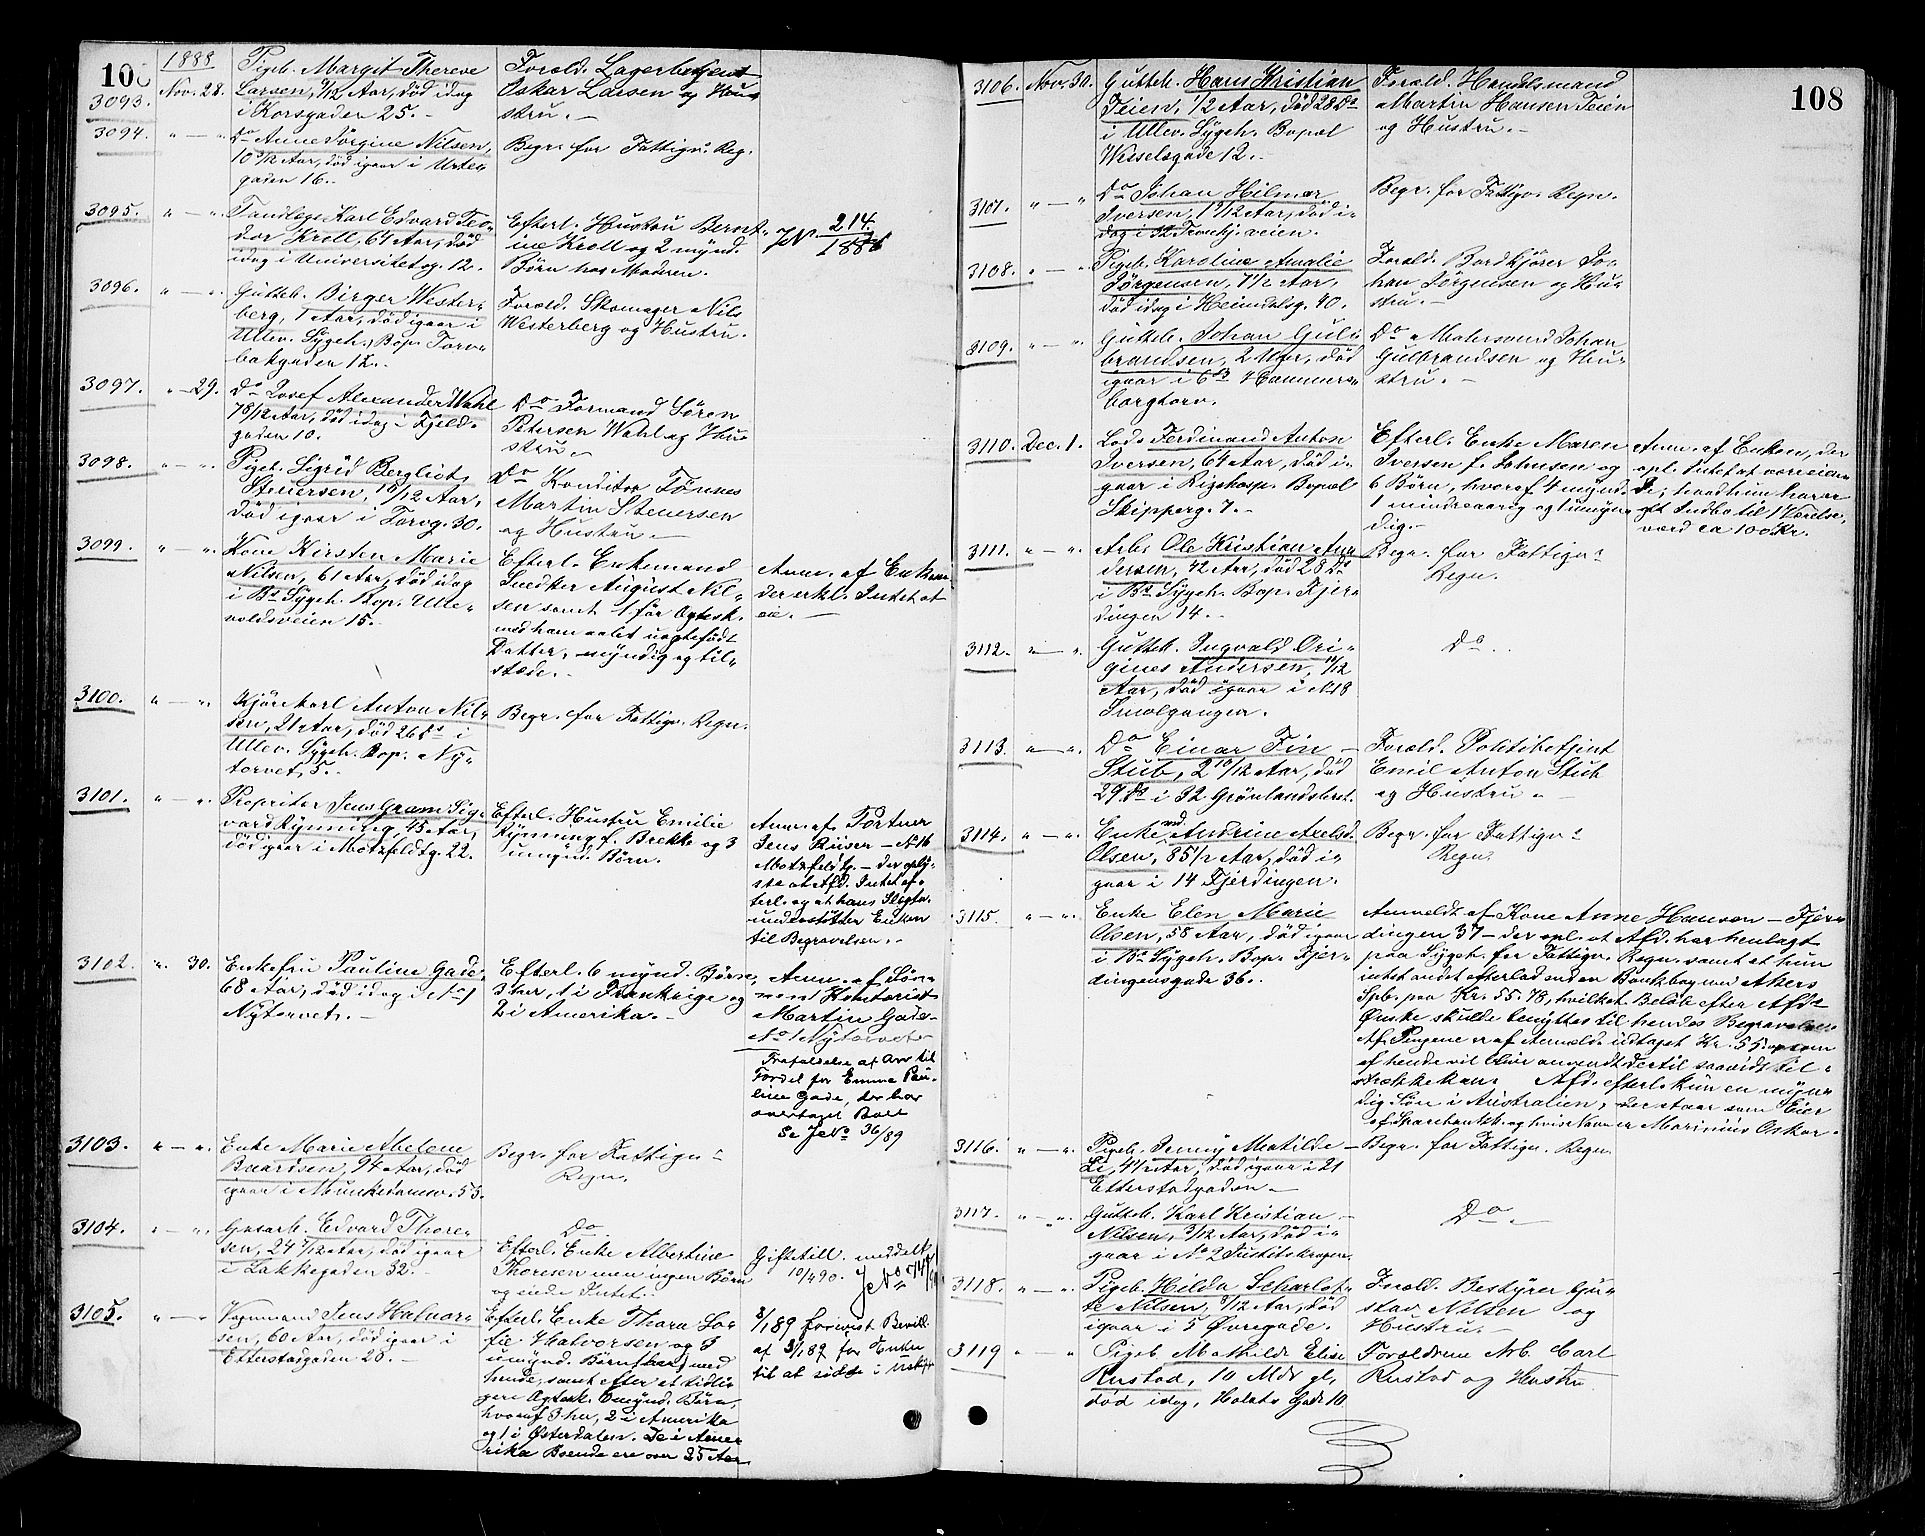 108
1888
3093.
Nov. 28.
Pigeb. Margit Therese
Larsen, 9/12 Aar, död idag
i Korsgaden 25.
Foræld. Lagerbetjent
Oskar Larsen og Hu-
stru.
3094.
" — "
Do Anne Jörgine Nilsen,
10 Aar, död igaar i Urte-
gaden 16.
Begr. for Fattigv. Reg.
3095.
" — "
Tandlæge Karl Edvard Teo-
dor Kroll, 64 Aar, död
idag i Universitetsg. 12.
Efterl. Hustru Bernt-
ine Kroll og 2 mynd.
Börn hos Moderen.
JN. 214
1888
3096.
" — "
Gutteb. Birger Wester-
berg, 1 Aar, död igaar i
Ullev. Sygeh. Bop. Torv-
bakgaden 12.
Foræld. Skomager Nils
Westerberg og Hustru.
3097.
" — 29.
Do Josef Alexander Wahl
7 8/12 Aar, död idag i Fjeld-
gaden 10.
Do Formand Sören
Petersen Wahl og Hu-
stru.
3098.
" — "
Pigeb. Sigrid Bergliot
Steuersen, 10/12 Aar,
död igaar i Torvg. 30.
Do Konditor Tönnes
Martin Steuersen
og Hustru.
3099.
" — "
Kone Kirsten Marie
Nilsen, 61 Aar, död idag
i Bs Sygeh. Bop. Ulle-
voldsveien 15.
Efterl. Enkemand
Snedker August Nil-
sen samt 1 för Ægtesk.
med ham avlet uægtefödt
Datter, myndig og til-
stede.
Anm. af Enkem.
der erkl. Intet at
eie.
3100.
" — "
Kjörekarl Anton Nil-
sen, 21 Aar, död 26 Ds i
Ullev. Sygeh. Bop. Ny-
torvet 5.
Begr. for Fattigv. Regn.
3101.
" — "
Propriter Jens Gram Sig-
vard Rynning, 45 Aar,
död igaar i Motzfeldtg. 22.
Efterl. Hustru Emilie
Rynning f. Brekke og 3
umynd. Börn.
Anm. af Portner
Jens Riiser — No 16
Motzfeldtg. — der oply-
ste at Afd. Intet ef-
terl. og at hans Slægtn.
understötter Enken
til Begravelsen.
3102.
" 30.
Enkefru Pauline Gade
68 Aar, död idag i No 1
Nytorvet.
Efterl. 6 mynd. Börn,
3 her, 1 i Frankrige og
2 i Amerika.
Anm. af Søn-
nen Kontorist
Martin Gade
No 1 Nytorvet
Frafaldelse af Arv til
Fordel for Emma Pau-
line Gade, der har
overtaget Boet
Se JNo 36/89
3103.
" — "
Enke Marie Abelone
Baardsen, 94 Aar, död
igaar i Munkedamsv. 53.
Begr. for Fattigv.
Regn.
3104.
" — "
Gasarb. Edvard Thore-
sen, 24 Aar, död igaar
i Lakkegaden 32.
Do
Efterl. Enke Albertine
Thoresen men ingen Börn
og eiede Intet.
Giftetill. meddelt
10/4 90.
3105.
" — "
Vognmand Jens Halvor-
sen, 60 Aar, död igaar i
Etterstadgaden 28.
Efterl. Enke Thora So-
fie Halvorsen og 3
umynd. Börn med
hende, samt efter et tidli-
gere Ægtesk. 6 mynd. Börn,
hvoraf 3 her, 2 i Amerika
og 1 i Østerdalen. De i Ame-
rika Boende ere over 25 Aar
3/1 89 forevist Bevill.
af 3/1 89 for Enken
til at sidde i uskift
108
3106.
Nov. 30.
Gutteb. Hans Kristian
Teien, 1/2 Aar, död 28 Ds
i Ullev. Sygeh. Bopæl
Wesselsgade 12.
Foræld. Handelsmand
Martin Hansen Teien
og Hustru.
3107.
" — "
Do Johan Hilmar
Iversen, 1 9/12 Aar, död i-
dag i 32 Trondhj.veien.
Begr. for Fattigv. Regn.
3108.
" — "
Pigeb. Karoline Amalie
Jörgensen, 7 1/2 Aar,
död idag i Heimdalsg. 40.
Foræld. Bordkjörer Jo-
han Jörgensen og Hu-
stru.
3109.
" — "
Gutteb. Johan Gul-
brandsen, 2 Aar, död
igaar i 6 B Hammers-
borgtorv.
Do Malersvend Johan
Gulbrandsen og Hu-
stru.
3110.
Dec. 1.
Lods Ferdinand Anton
Iversen, 64 Aar, död i-
gaar i Rigshosp. Bopæl
Skipperg. 7.
Efterl. Enke Maren
Iversen f. Johnsen og
6 Börn, hvoraf 4 mynd.
1 mindreaarig og 1 umyn-
dig.
Anm. af Enken, der
opl. Intet at være eien-
de; hvad hun har er
lidt Indbo til 1 Værelse,
værd ca 100 Kr.
3111.
" — "
Arb. Ole Kristian An-
dersen, 42 Aar, död 28 Ds
i Bs Sygeh. Bop. Fjer-
dingen 14.
Begr. for Fattigv.
Regn.
3112.
" — "
Gutteb. Ingvald Ori-
gines Andersen, 11/12
Aar, död igaar i No 18
Smalgangen.
Do.
3113.
" — "
Do Einar Fin
Stub, 2 10/12 Aar, död
29 Ds i 32 Grönlandsleret.
Foræld. Politibetjent
Emil Anton Stub
og Hustru.
3114.
" — "
Enke Andrine Axelsd.
Olsen, 85 1/2 Aar, död i-
gaar i 14 Fjerdingen.
Begr. for Fattigv.
Regn.
3115.
" — "
Enke Elen Marie
Olsen, 58 Aar, död igaar
i Bs Sygeh. Bop. Fjer-
dingensgade 36.
Anmeldt af Kone Anne Hansen — Fjer-
dingen 37 — der opl. at Afd. har henlagt
paa Sygeh. for Fattigv. Regn. samt at hun
intet andet efterlod end en Bankbog ved Akers
Spb. paa Kr. 55.78, hvilket Belöb efter Afds
Ønske skulde benyttes til hendes Begravelse.
Af Pengene er af Anmeld. udtaget Kr. 55. som
af hende vil blive anvendt dertil saavidt til-
strække kan. Afd. efterl. kun en myn-
dig Sön i Australien, der staar som Eier
af Sparebankb. og hvis Navn er Marinius Oskar.
3116.
" — "
Pigeb. Jenny Mathilde
Li, 4 1/2 Aar, död igaar i 21
Etterstadgaden.
Begr. for Fattigv. Regn.
3117.
" — "
Gutteb. Karl Kristian
Nilsen, 3/12 Aar, död i-
gaar i No 2
Do.
3118.
" — "
Pigeb. Hilda Scharlot-
te Nilsen, 8/12 Aar, död
igaar i 5 Øvregade.
Foræld. Bestyrer Gu-
stav Nilsen og
Hustru.
3119
" — "
Pigeb. Mathilde Elise
Rustad, 10 Mdr gl,
död idag, Holsts Gade 10
Forældrene Arb. Carl
Rustad og Hustru